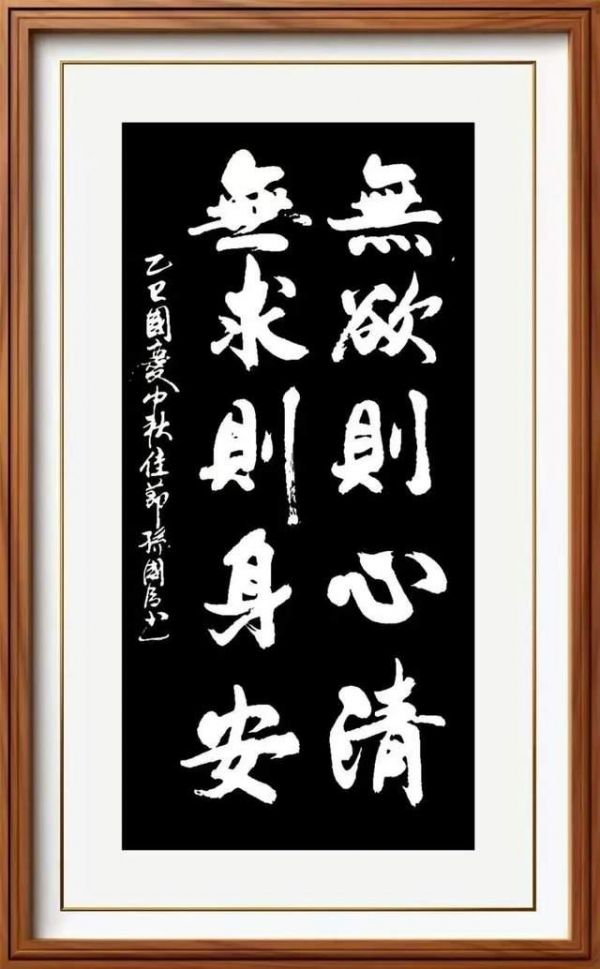 無欲則心清
無求則身安
乙巳國慶中秋佳節孫國